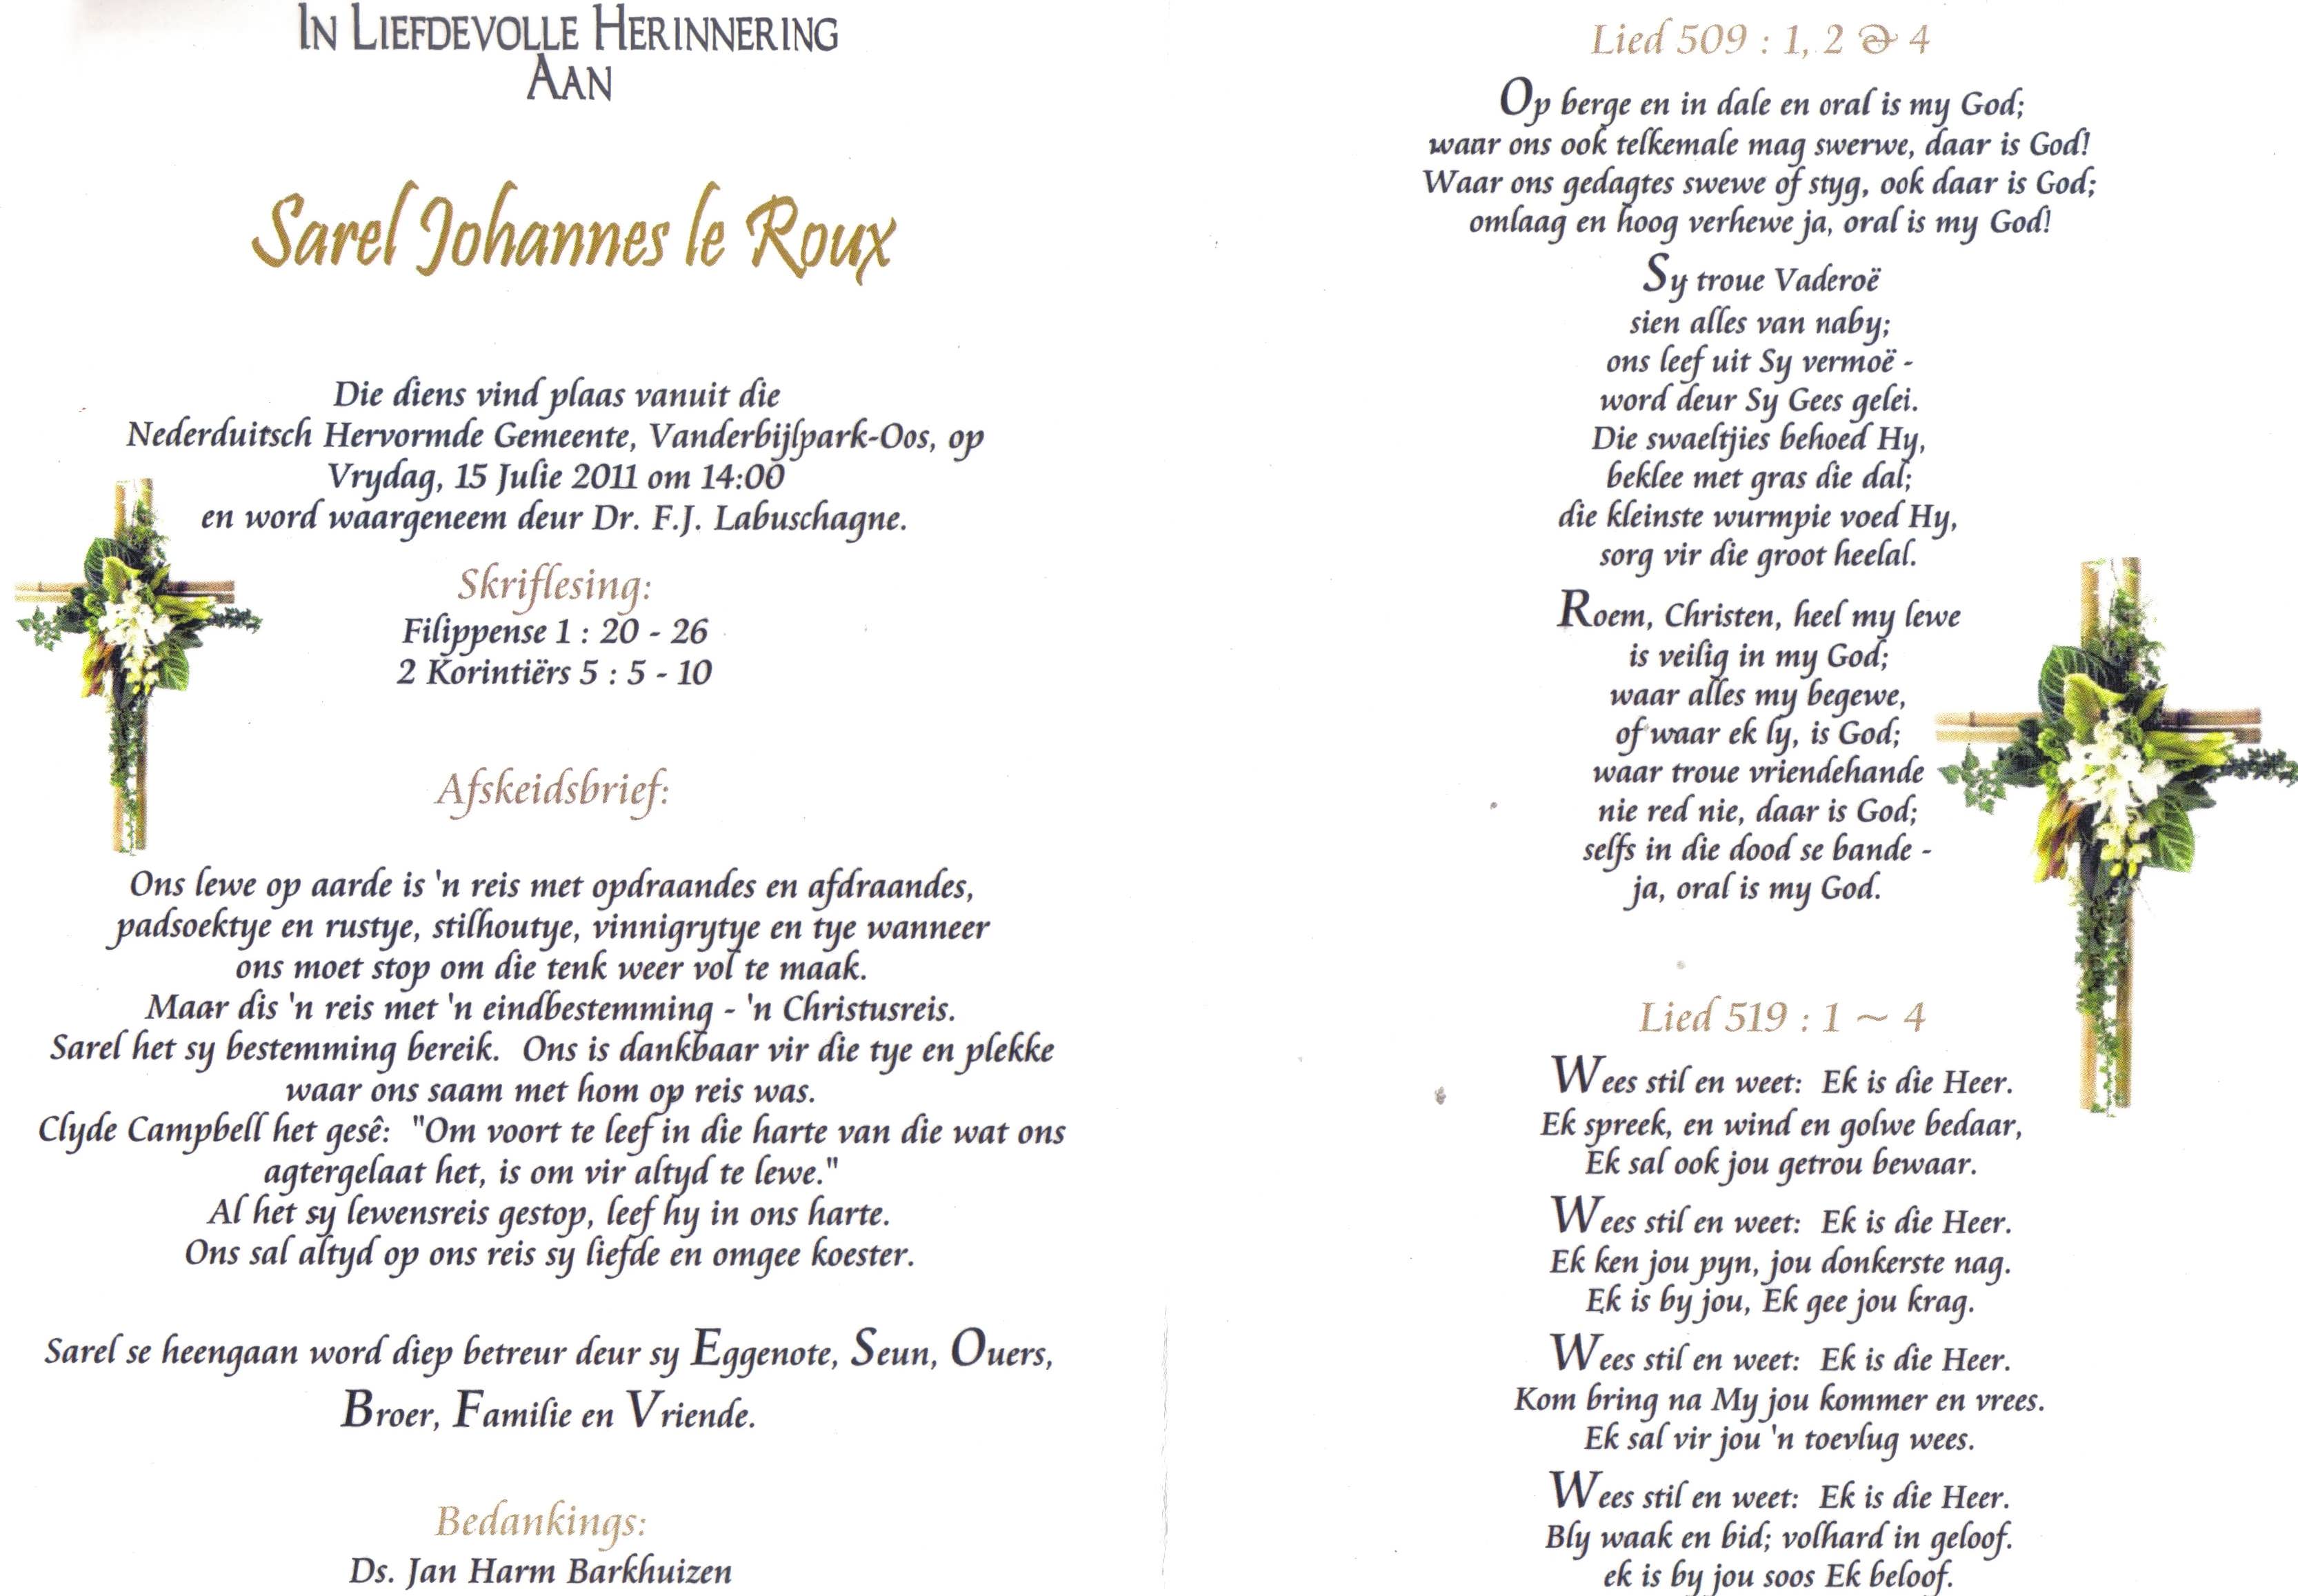 In Liefdevolle Herinnering
Aan
Sarel Johannes le Roux
Die diens vind plaas vanuit die
Nederduitsch Hervormde Gemeente, Vanderbijlpark-Oos, op
Vrydag, 15 Julie 2011 om 14:00
en word waargeneem deur Dr. F.J. Labuschagne.
Skriflesing:
Filippense 1 : 20 - 26
2 Korintiërs 5 : 5 - 10
Afskeidsbrief:
Ons lewe op aarde is 'n reis met opdraandes en afdraandes,
padsoektye en rustye, stilhoutye, vinnigrytye en tye wanneer
ons moet stop om die tenk weer vol te maak.
Maar dis 'n reis met 'n eindbestemming - 'n Christusreis.
Sarel het sy bestemming bereik.  Ons is dankbaar vir die tye en plekke
waar ons saam met hom op reis was.
Clyde Campbell het gesê:  "Om voort te leef in die harte van die wat ons
agtergelaat het, is om vir altyd te lewe."
Al het sy lewensreis gestop, leef hy in ons harte.
Ons sal altyd op ons reis sy liefde en omgee koester.
Sarel se heengaan word diep betreur deur sy Eggenote, Seun, Ouers,
Broer, Familie en Vriende.
Bedankings:
Ds. Jan Harm Barkhuizen
Lied 509 : 1, 2 & 4
Op berge en in dale en oral is my God;
waar ons ook telkemale mag swerwe, daar is God!
Waar ons gedagtes swewe of styg, ook daar is God;
omlaag en hoog verhewe ja, oral is my God!
Sy troue Vaderoë
sien alles van naby;
ons leef uit Sy vermoë -
word deur Sy Gees gelei.
Die swaeltjies behoed Hy,
beklee met gras die dal;
die kleinste wurmpie voed Hy,
sorg vir die groot heelal.
Roem, Christen, heel my lewe
is veilig in my God;
waar alles my begewe,
of waar ek ly, is God;
waar troue vriendehande
nie red nie, daar is God;
selfs in die dood se bande -
ja, oral is my God.
Lied 519 : 1 ~ 4
Wees stil en weet:  Ek is die Heer.
Ek spreek, en wind en golwe bedaar,
Ek sal ook jou getrou bewaar.
Wees stil en weet:  Ek is die Heer.
Ek ken jou pyn, jou donkerste nag.
Ek is by jou, Ek gee jou krag.
Wees stil en weet:  Ek is die Heer.
Kom bring na My jou kommer en vrees.
Ek sal vir jou 'n toevlug wees.
Wees stil en weet:  Ek is die Heer.
Bly waak en bid; volhard in geloof.
ek is by jou soos Ek beloof.